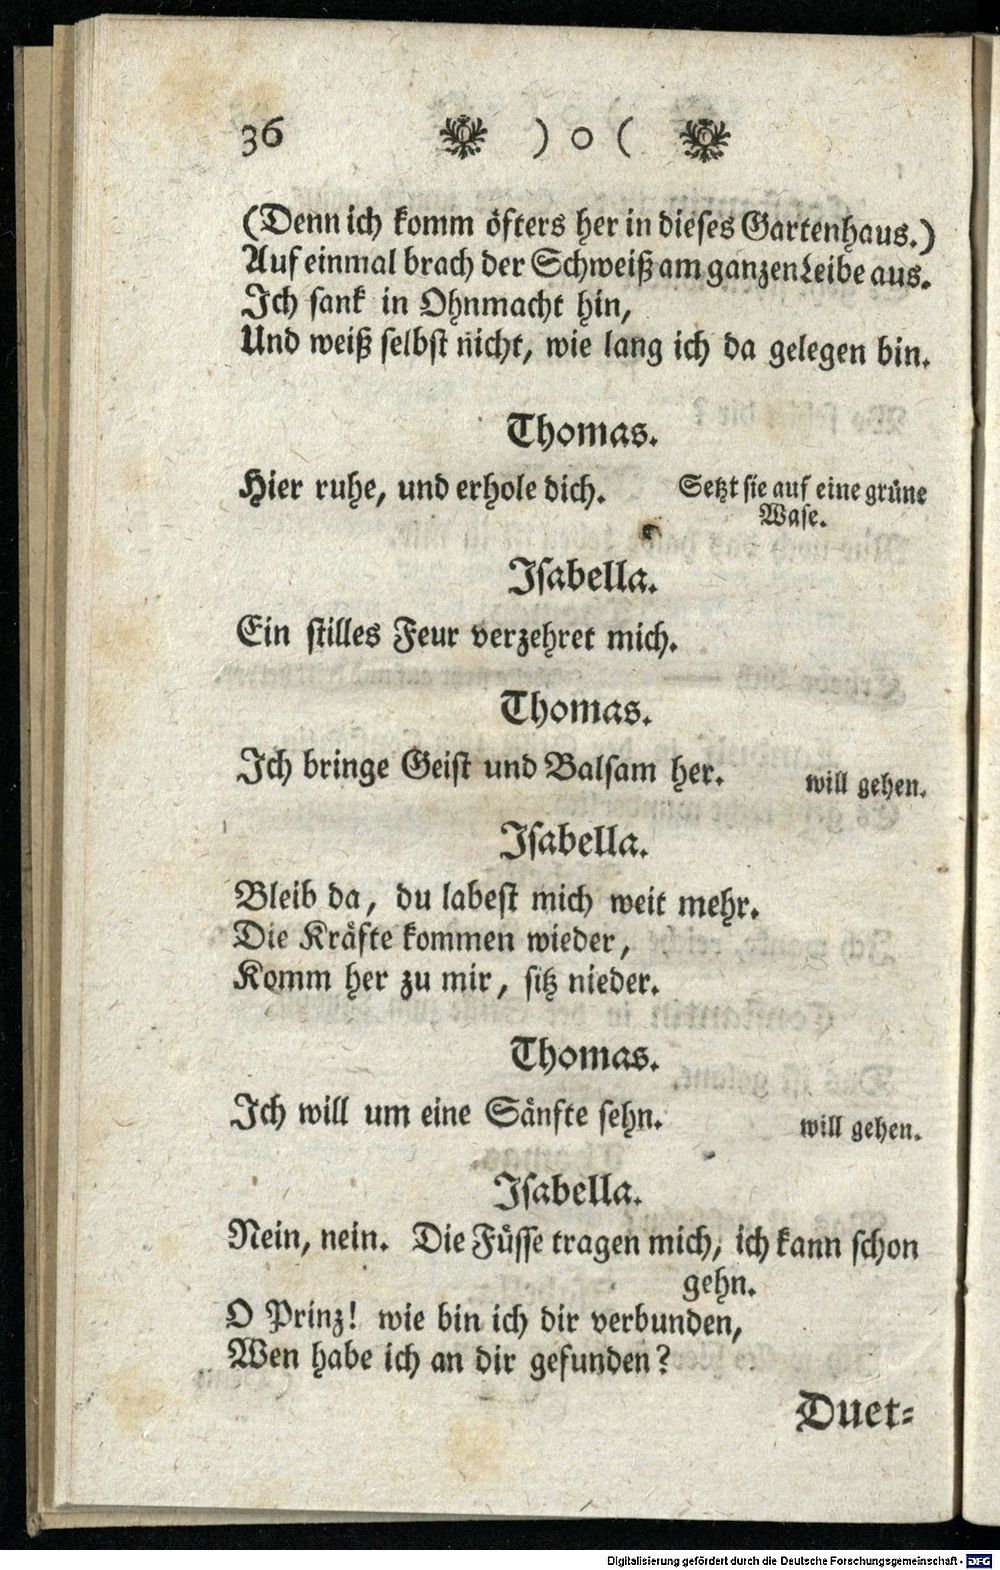 36 ) o (
(Denn ich komm öfters her in dieses Gartenhaus.)
Auf einmal brach der Schweiß am ganzen Leibe aus.
Ich sank in Ohnmacht hin,
Und weiß selbst nicht, wie lang ich da gelegen bin.
Thomas.
Hier ruhe, und erhole dich. Setzt sie auf eine grüne
Wase.
Isabella.
Ein stilles Feur verzehret mich.
Thomas.
Ich bringe Geist und Balsam her. will gehen.
Isabella.
Bleib da, du labest mich weit mehr.
Die Kräfte kommen wieder,
Komm her zu mir, sitz nieder.
Thomas.
Ich will um eine Sänfte sehn. will gehen.
Isabella.
Nein, nein. Die Füsse tragen mich, ich kann schon
gehn.
O Prinz! wie bin ich dir verbunden,
Wen habe ich an dir gefunden?
Duet-
Digitalisierung gefördert durch die Deutsche Forschungsgemeinschaft - DFG